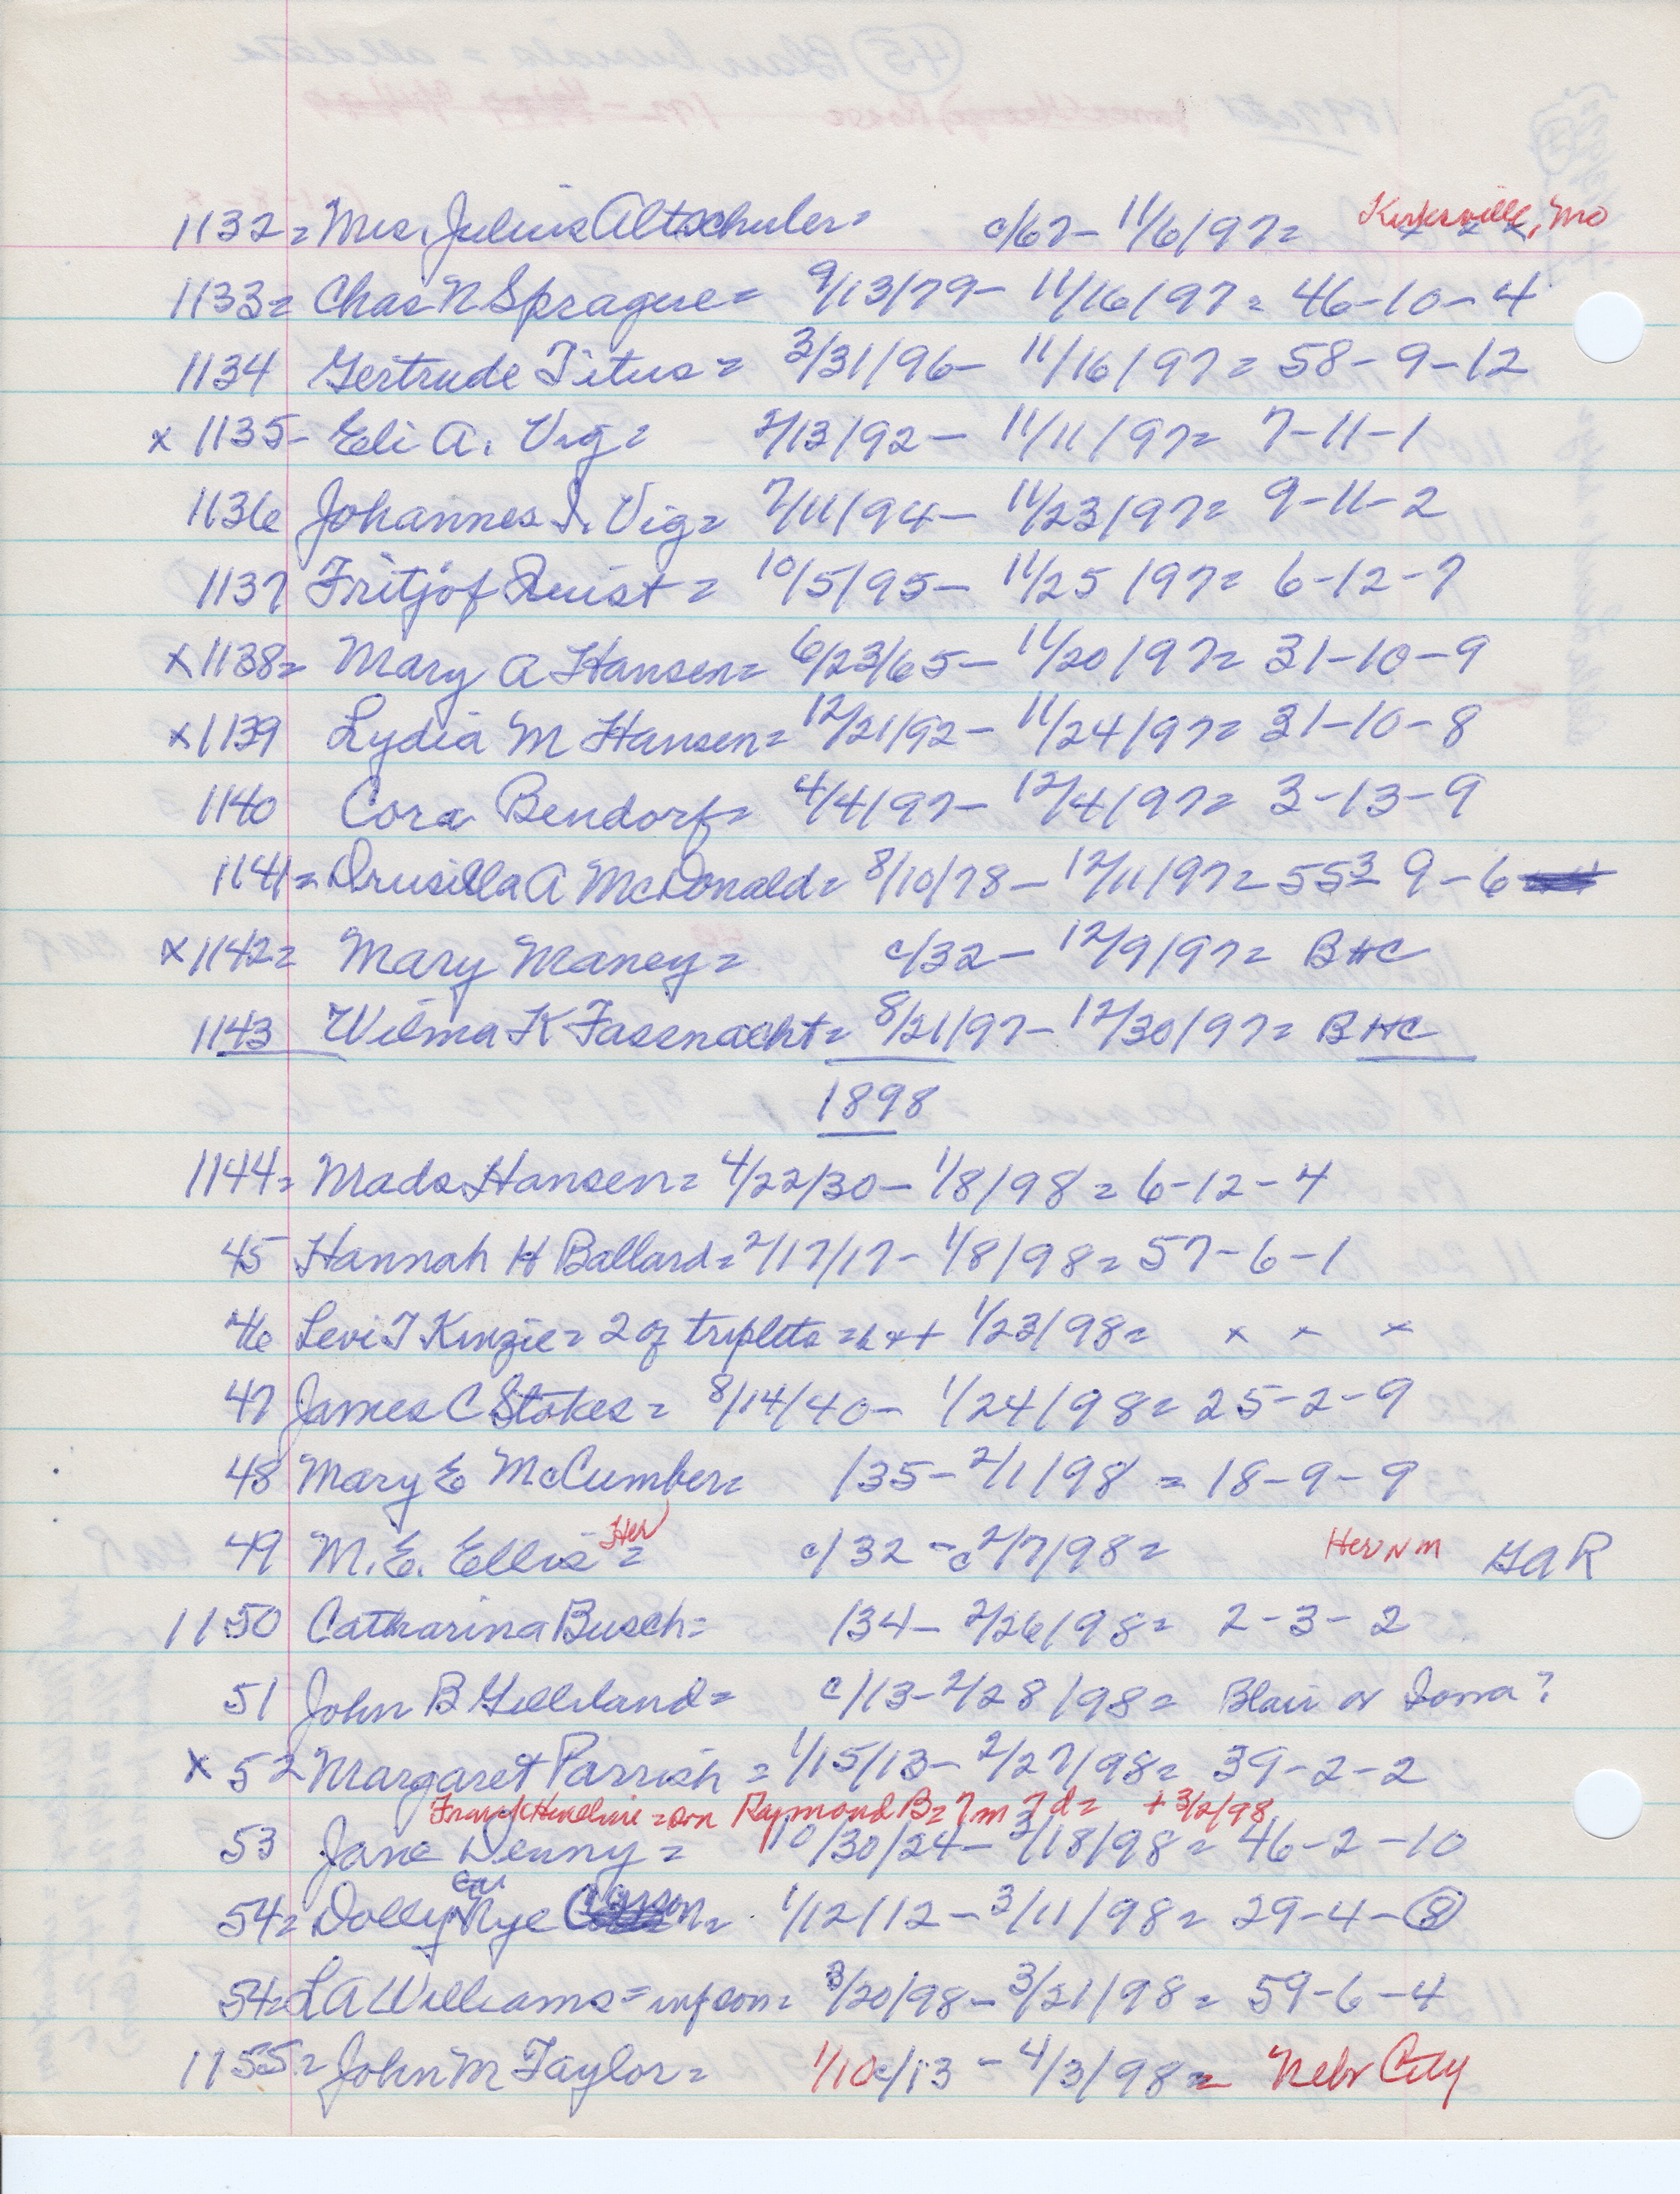 1132= Mrs. Julius Altschuler= c/67- 11/6/97= Kirksville, Mo
1133= Chas N Sprague= 9/13/79- 11/16/97= 46-10-4
1134 Gertrude Titus= 3/31/96- 11/16/97= 58-9-12
x 1135- Eli A. Vig= 2/13/92- 11/11/97= 7-11-1
1136 Johannes I. Vig= 7/11/94- 11/23/97= 9-11-2
1137 Fritjof Quist= 10/5/95- 11/25/97= 6-12-7
x1138= Mary A Hansen= 6/23/65- 11/20/97= 31-10-9
x1139 Lydia M Hansen= 12/21/92- 11/24/97= 31-10-8
1140 Cora Bendorf= 4/4/97- 12/4/97= 3-13-9
1141= Drusilla A McDonald= 8/10/78- 12/11/97= 553- 9-6
x1142= Mary Maney= c/32- 12/9/97= BHC
1143 Wilma K Fasenacht= 8/21/97- 12/30/97= BHC
1898
1144= Mads Hansen= 4/22/30- 1/8/98= 6-12-4
45 Hannah H Ballard= 2/17/17- 1/8/98= 57-6-1
46 Levi T Kinzie= 2 of triplets =b++ 1/23/98= x x x
47 James C Stokes= 8/14/40- 1/24/98= 25-2-9
48 Mary E McCumber= /35- 2/1/98 = 18-9-9
49 M.E. Ellis Her = c/32 - c2/7/98= Her N M GAR
1150 Catharina Busch= /34- 2/26/98= 2-3-2
51 John B Gilliland= c/13- 2/28/98= Blair or Iowa?
x 52 Margaret Parrish = 1/15/13- 2/27/98= 39-2-2
Frank = son Raymond B= ?m ?d= + 3/2/98
53 Jane Denny= 10/30/24- 3/18/98= 46-2-10
54= Dolly Nye Carson= 1/12/12- 3/11/98= 29-4-8
54= LA Williams= inf son= 3/20/98- 3/21/98= 59-6-4
1155= John M Taylor= 1/10c/13 - 4/3/98= Nebr City